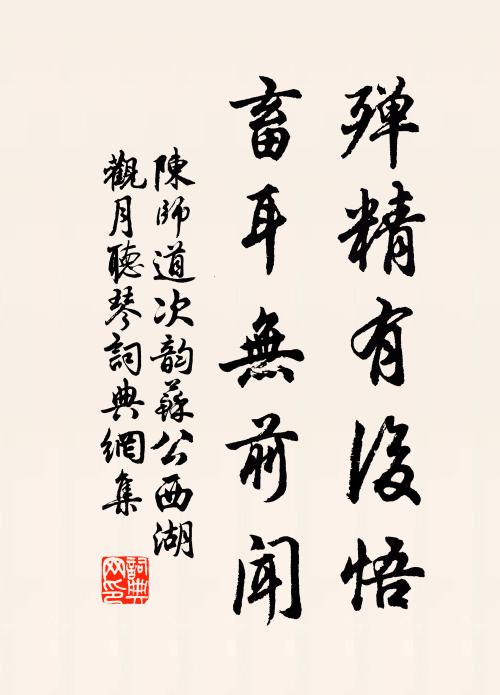 殫精有後悟
畜耳無前聞
陳師道次韵蘇公西湖
觀月聽琴詞典網集
詞典
网印